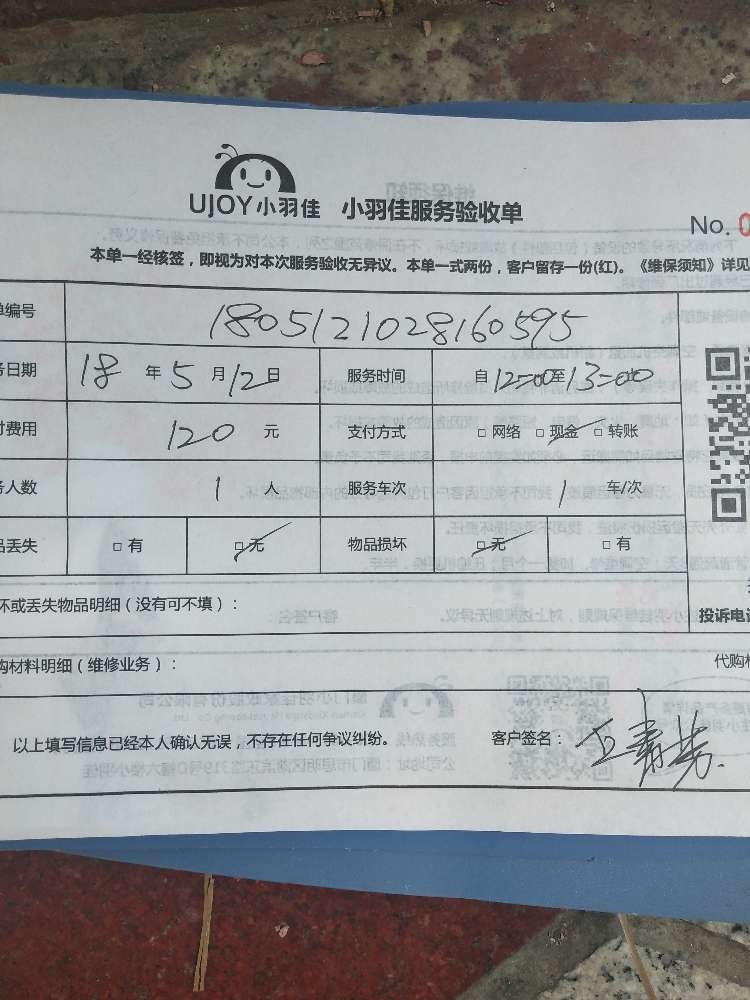 UJOY小羽佳 小羽佳服务验收单
No. 0
本单一经核签，即视为对本次服务验收无异议。本单一式两份，客户留存一份(红)。《维保须知》详见
单编号 1805121028160595
务日期 18 年 5 月 12 日 服务时间 自 12:00 至 13:00
付费用 120 元 支付方式 □ 网络 □ 现金 □ 转账
务人数 1 人 服务车次 1 车/次
品丢失 □ 有 □ 无 物品损坏 □ 无 □ 有
坏或丢失物品明细（没有可不填）：
投诉电话
购材料明细（维修业务）：
代购材
以上填写信息已经本人确认无误，不存在任何争议纠纷。 客户签名：